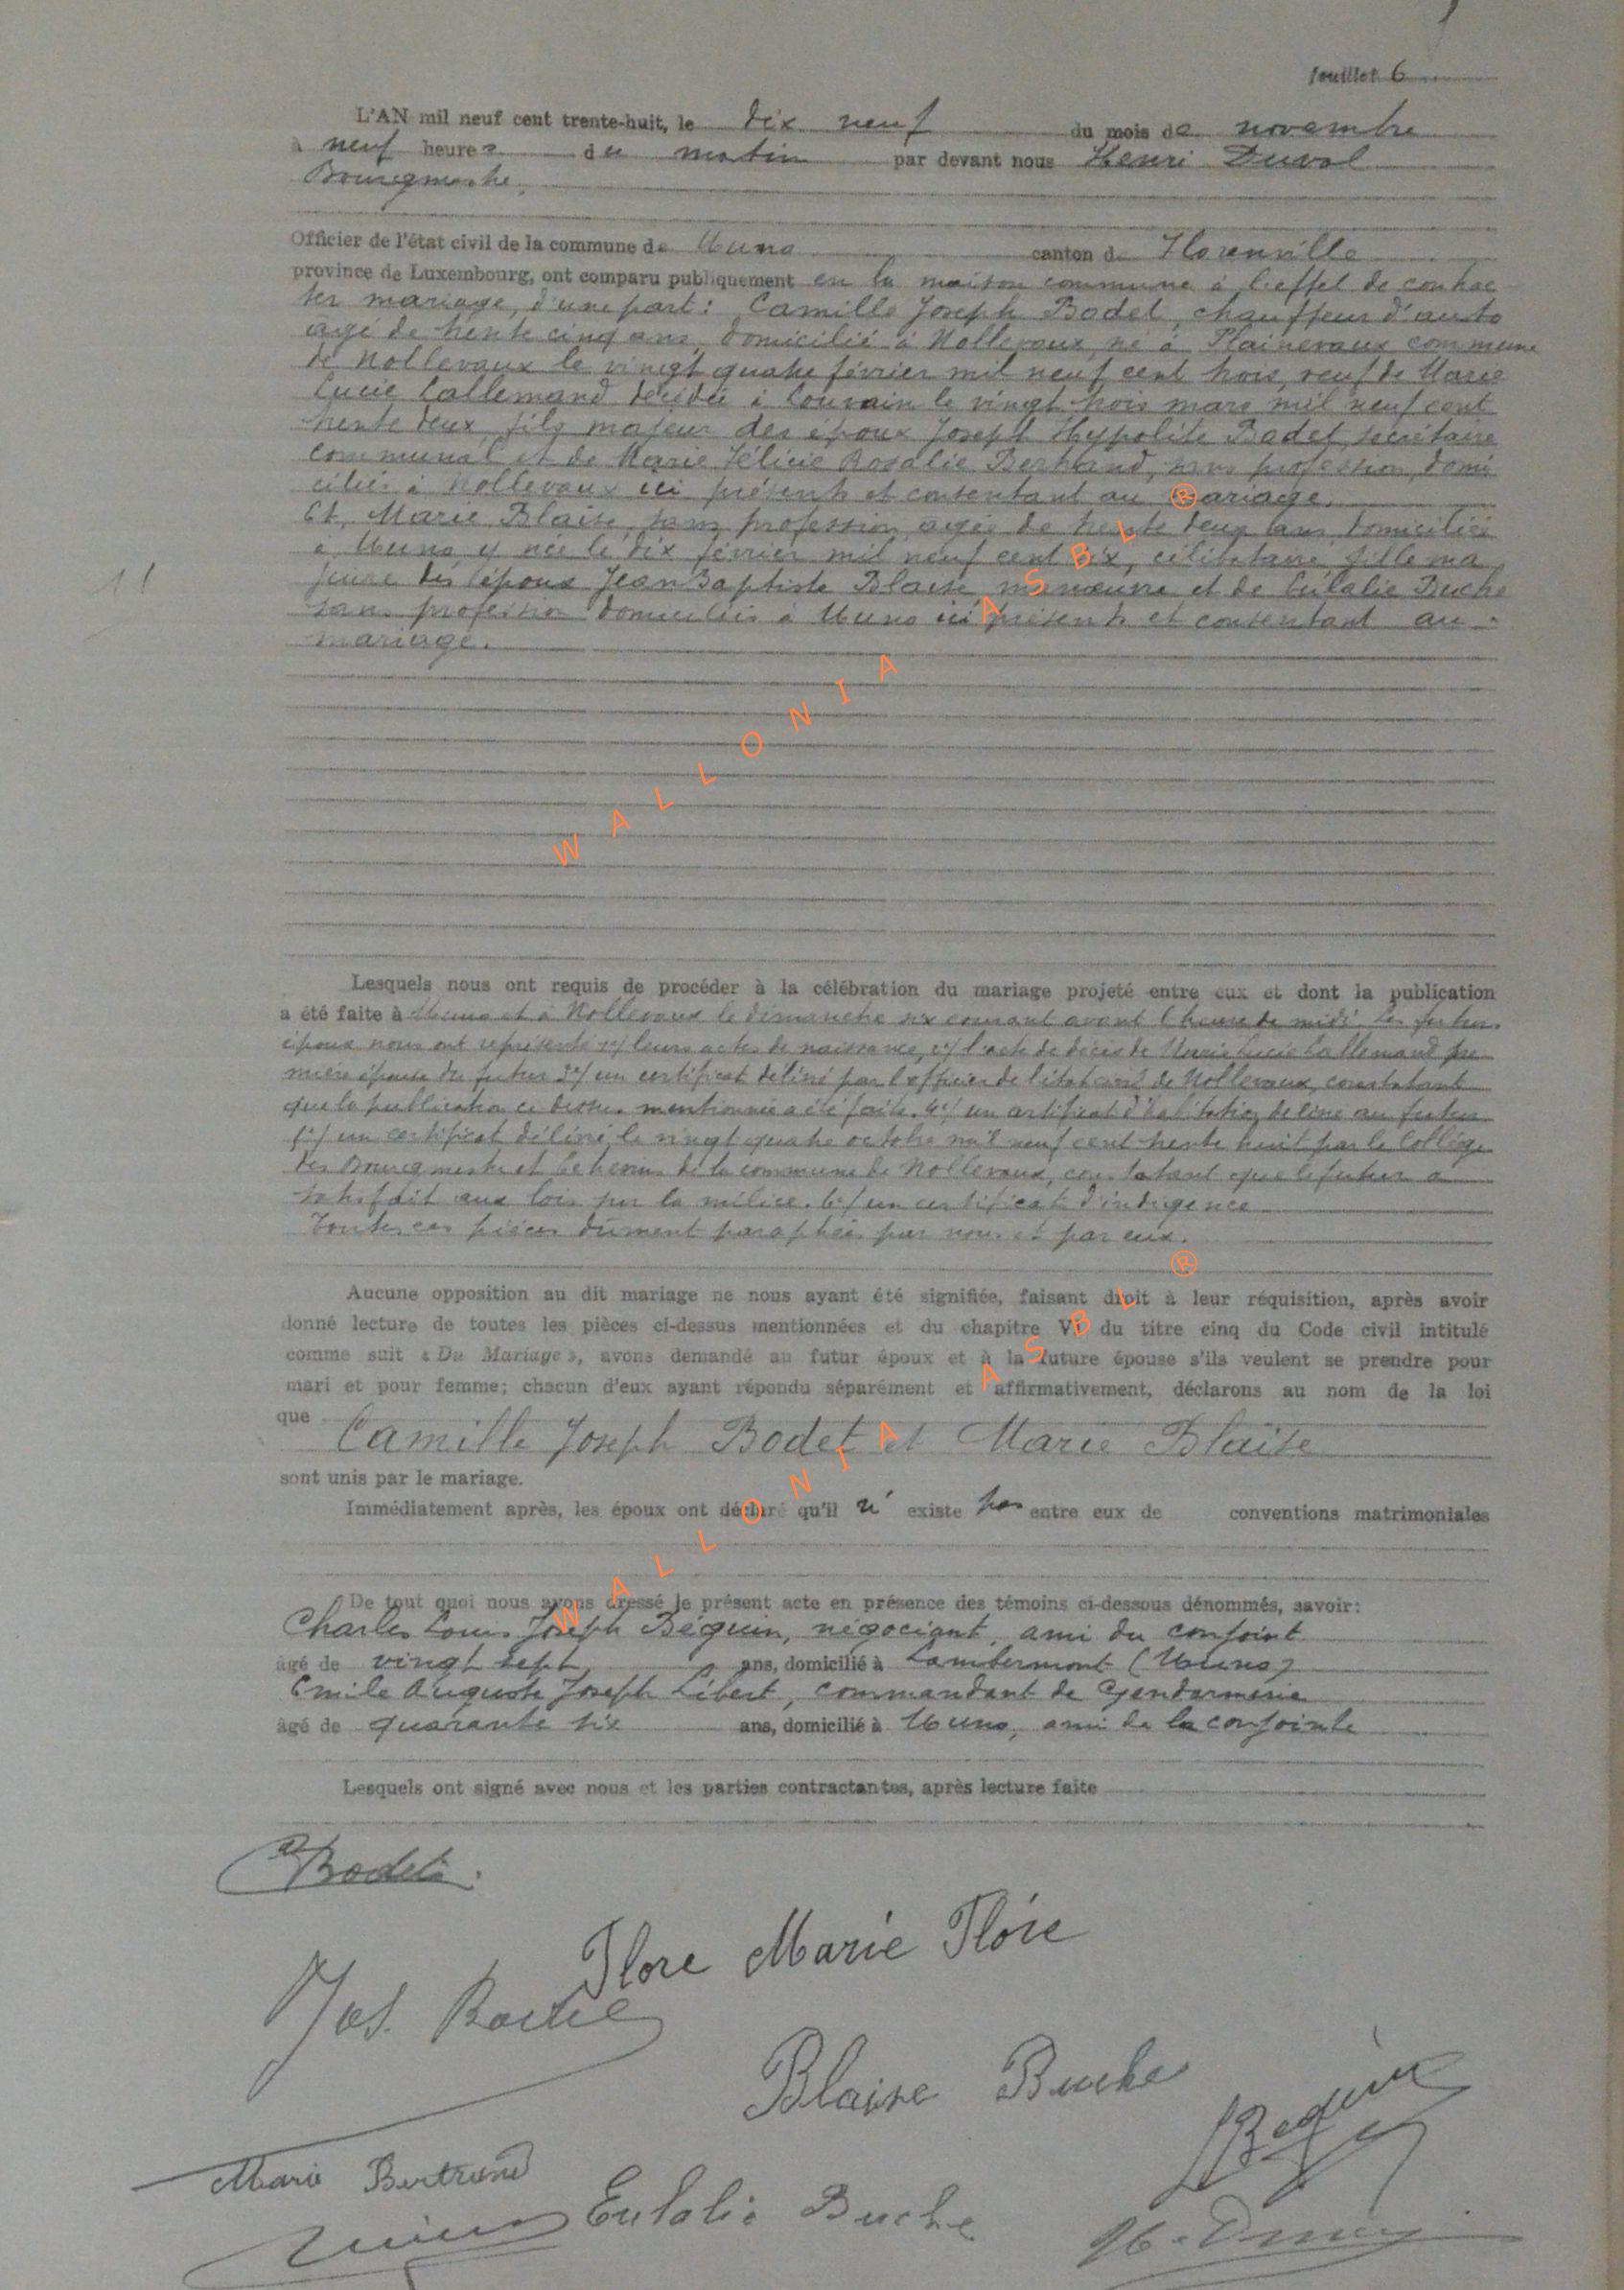 feuillet 6
L'AN mil neuf cent trente-huit, le dix neuf du mois de novembre
à neuf heures du matin par devant nous Henri Duval
Bourgmestre
Officier de l'état civil de la commune de Muno canton de Florenville
province de Luxembourg, ont comparu publiquement en la maison commune à l'effet de contrac
ter mariage, d'une part : Camille Joseph Bodet, chauffeur d'auto
agé de trente cinq ans, domicilié à Nollevaux, né à Plainevaux commune
de Nollevaux le vingt quatre février mil neuf cent trois, veuf de Marie
Lucie Lallemand décédée à Louvain le vingt trois mars mil neuf cent
trente deux, fils majeur des époux Joseph Hypolite Bodet, secrétaire
communal et de Marie Félicie Rosalie Bertrand, sans profession, domi
ciliés à Nollevaux ici présents et consentant au mariage.
Et, Marie Blaise, sans profession, agée de trente deux ans, domiciliée
à Muno y née le dix février mil neuf cent six, célibataire, fille ma
jeure des époux Jean Baptiste Blaise, manœuvre et de Eulalie Buche
sans profession domiciliés à Muno ici présents et consentant au
mariage.
11
Lesquels nous ont requis de procéder à la célébration du mariage projeté entre eux et dont la publication
a été faite à Muno et à Nollevaux le dimanche six courant avant l'heure de midi. Les futurs
époux nous ont représenté 1°/ leurs actes de naissance, 2°/ l'acte de décès de Marie Lucie Lallemand pre
mière épouse du futur 3°/ un certificat délivré par l'officier de l'état civil de Nollevaux, constatant
que la publication ci dessus mentionnée a été faite. 4°/ un certificat d'habitation délivré au futur
5°/ un certificat délivré le vingt quatre octobre mil neuf cent trente huit par le Collège
des Bourgmestre et Echevins de la commune de Nollevaux, constatant que le futur a
satisfait aux lois sur la milice. 6°/ un certificat d'indigence
Toutes ces pièces dûment paraphées par nous et par eux.
Aucune opposition au dit mariage ne nous ayant été signifiée, faisant droit à leur réquisition, après avoir
donné lecture de toutes les pièces ci-dessus mentionnées et du chapitre VI du titre cinq du Code civil intitulé
comme suit « Du Mariage », avons demandé au futur époux et à la future épouse s'ils veulent se prendre pour
mari et pour femme; chacun d'eux ayant répondu séparément et affirmativement, déclarons au nom de la loi
que Camille Joseph Bodet et Marie Blaise
sont unis par le mariage.
Immédiatement après, les époux ont déclaré qu'il n' existe pas entre eux de conventions matrimoniales
De tout quoi nous avons dressé le présent acte en présence des témoins ci-dessous dénommés, savoir:
Charles Louis Joseph Béguin, négociant, ami du conjoint
âgé de vingt sept ans, domicilié à Lambermont (Muno)
Emile Auguste Joseph Libert, commandant de Gendarmerie
âgé de quarante six ans, domicilié à Muno, ami de la conjointe
Lesquels ont signé avec nous et les parties contractantes, après lecture faite
Bodet
Flore Marie Flore
Jos. Bodet
Blaise Buche
Béguin
Marie Bertrand
Eulalie Buche
H. Duval
WALLONIA ASBL ®
WALLONIA ASBL ®